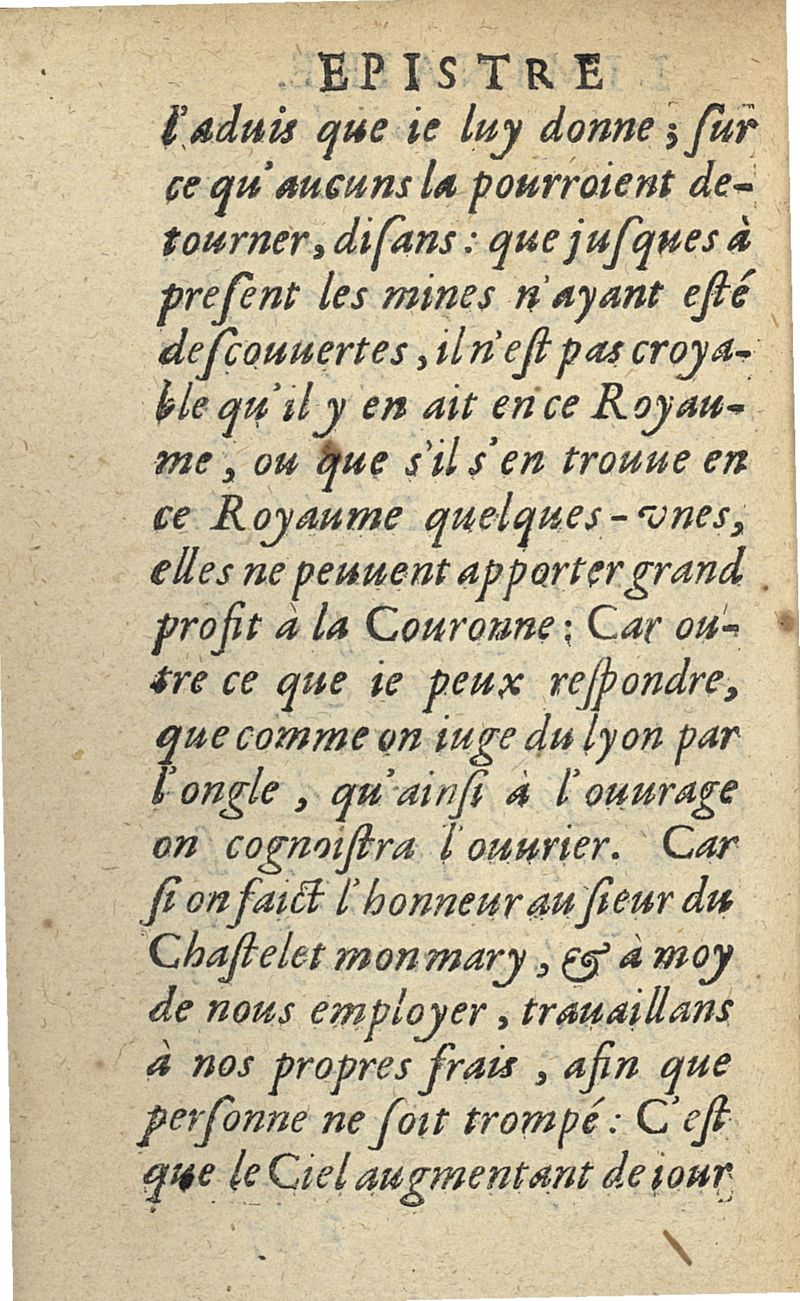 EPISTRE
l'aduis que ie luy donne ; ſur
ce qu'aucuns la pourroient de-
tourner, diſans : que juſques à
preſent les mines n'ayant eſté
deſcouuertes, il n'eſt pas croya-
ble qu'il y en ait en ce Royau-
me, ou que s'il s'en trouue en
ce Royaume quelques-vnes,
elles ne peuuent apporter grand
profit à la Couronne : Car ou-
tre ce que ie peux reſpondre,
que comme on iuge du lyon par
l'ongle, qu'ainſi à l'ouurage
on cognoiſtra l'ouurier. Car
ſi on faict l'honneur au ſieur du
Chaſtelet mon mary, & à moy
de nous employer, trauaillans
à nos propres frais, afin que
perſonne ne ſoit trompé : C'eſt
que le Ciel augmentant de iour